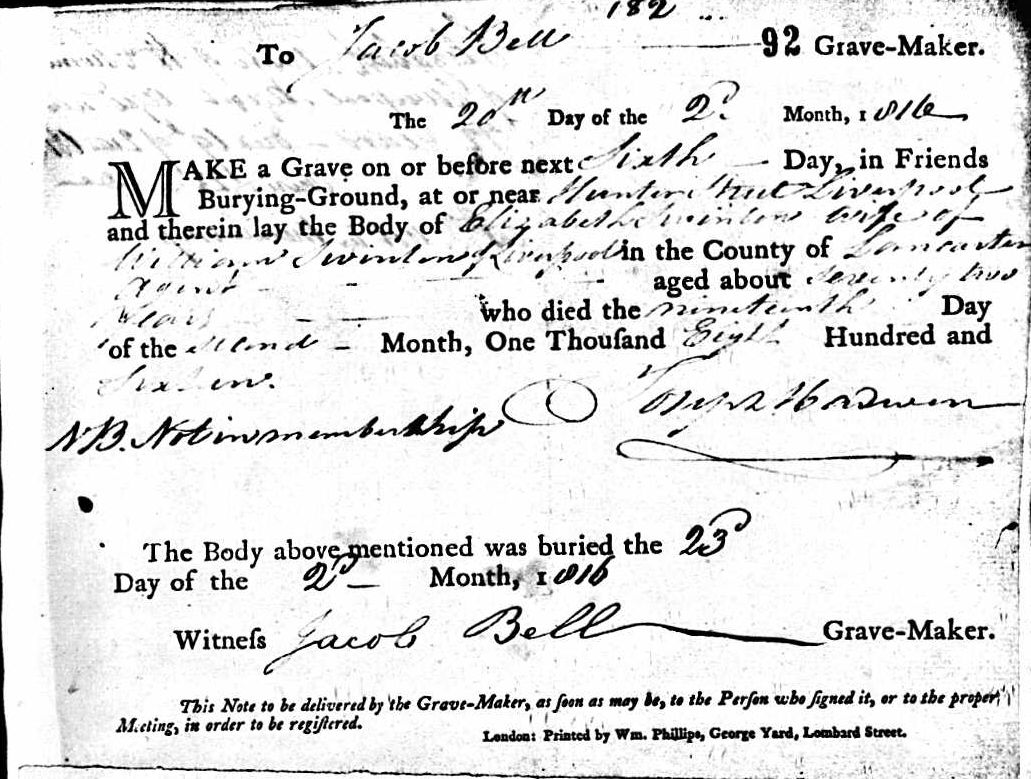 182
To Jacob Bell 92 Grave-Maker.
The 20th Day of the 2d. Month, 1816
MAKE a Grave on or before next Sixth Day, in Friends
Burying-Ground, at or near Hunter Street Liverpool
and therein lay the Body of Elizabeth Swinton wife of
William Swinton of Liverpool in the County of Lancaster
Agent aged about seventy two
Years who died the nineteenth Day
of the second Month, One Thouſand Eight Hundred and
Sixteen.
Joseph Hadwen
NB. Not in membership
The Body above mentioned was buried the 23d
Day of the 2d Month, 1816
Witneſs Jacob Bell Grave-Maker.
This Note to be delivered by the Grave-Maker, as ſoon as may be, to the Perſon who ſigned it, or to the proper
Meeting, in order to be regiſtered.
London: Printed by Wm. Phillips, George Yard, Lombard Street.